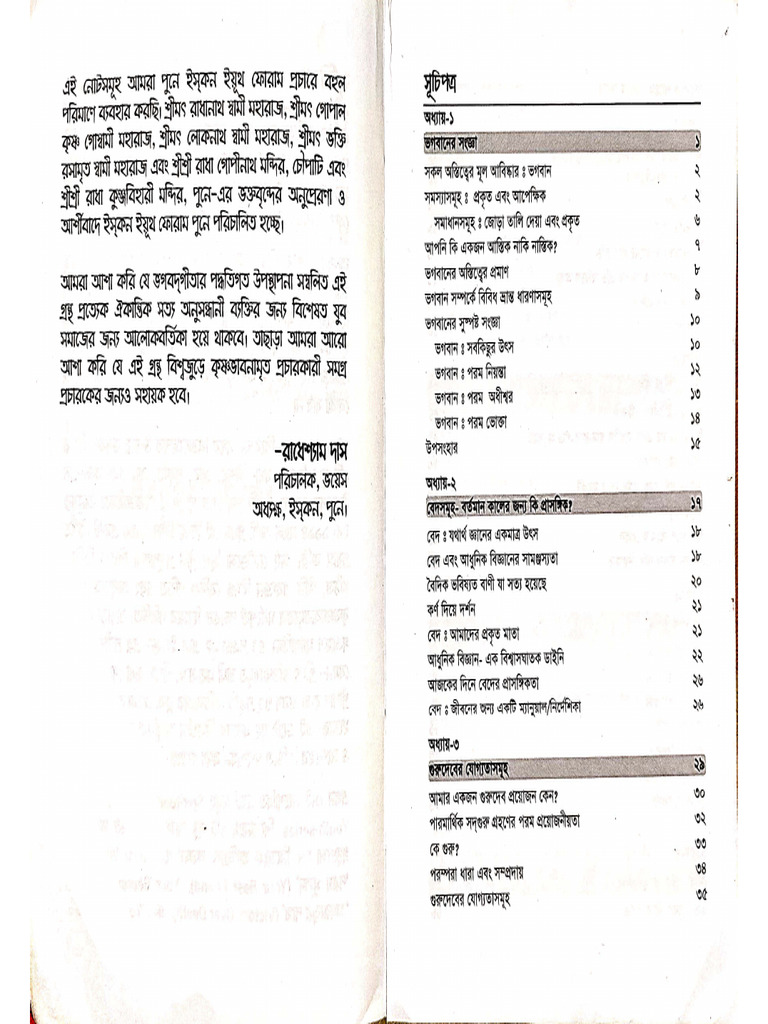 এই নোটসমূহ আমরা পুনে ইস্‌কন ইয়ূথ ফোরাম প্রচারে বহুল
পরিমাণে ব্যবহার করছি। শ্রীমৎ রাধানাথ স্বামী মহারাজ, শ্রীমৎ গোপাল
কৃষ্ণ গোস্বামী মহারাজ, শ্রীমৎ লোকনাথ স্বামী মহারাজ, শ্রীমৎ ভক্তি
রসামৃত স্বামী মহারাজ এবং শ্রীশ্রী রাধা গোপীনাথ মন্দির, চৌপাটি এবং
শ্রীশ্রী রাধা কুঞ্জবিহারী মন্দির, পুনে-এর ভক্তবৃন্দের অনুপ্রেরণা ও
আর্শীবাদে ইস্‌কন ইয়ূথ ফোরাম পুনে পরিচালিত হচ্ছে।
আমরা আশা করি যে ভগবদ্‌গীতার পদ্ধতিগত উপস্থাপনা সম্বলিত এই
গ্রন্থ প্রত্যেক ঐকান্তিক সত্য অনুসন্ধানী ব্যক্তির জন্য বিশেষত যুব
সমাজের জন্য আলোকবর্তিকা হয়ে থাকবে। তাছাড়া আমরা আরো
আশা করি যে এই গ্রন্থ বিশ্বজুড়ে কৃষ্ণভাবনামৃত প্রচারকারী সমগ্র
প্রচারকের জন্যও সহায়ক হবে।
-রাধেশ্যাম দাস
পরিচালক, ভয়েস
অধ্যক্ষ, ইস্‌কন, পুনে।
সূচিপত্র
অধ্যায়-১
ভগবানের সংজ্ঞা ১
সকল অস্তিত্বের মূল আবিষ্কার : ভগবান ২
সমস্যাসমূহ : প্রকৃত এবং আপেক্ষিক ২
সমাধানসমূহ : জোড়া তালি দেয়া এবং প্রকৃত ৬
আপনি কি একজন আস্তিক নাকি নাস্তিক? ৭
ভগবানের অস্তিত্বের প্রমাণ ৮
ভগবান সম্পর্কে বিবিধ ভ্রান্ত ধারণাসমূহ ৯
ভগবানের সুস্পষ্ট সংজ্ঞা ১০
ভগবান : সবকিছুর উৎস ১০
ভগবান : পরম নিয়ন্তা ১২
ভগবান : পরম অধীশ্বর ১৩
ভগবান : পরম ভোক্তা ১৪
উপসংহার ১৫
অধ্যায়-২
বেদসমূহ- বর্তমান কালের জন্য কি প্রাসঙ্গিক? ১৭
বেদ : যথার্থ জ্ঞানের একমাত্র উৎস ১৮
বেদ এবং আধুনিক বিজ্ঞানের সামঞ্জস্যতা ১৮
বৈদিক ভবিষ্যত বাণী যা সত্য হয়েছে ২০
কর্ণ দিয়ে দর্শন ২১
বেদ : আমাদের প্রকৃত মাতা ২১
আধুনিক বিজ্ঞান- এক বিশ্বাসঘাতক ডাইনি ২২
আজকের দিনে বেদের প্রাসঙ্গিকতা ২৬
বেদ : জীবনের জন্য একটি ম্যানুয়াল/নির্দেশিকা ২৬
অধ্যায়-৩
গুরুদেবের যোগ্যতাসমূহ ২৯
আমার একজন গুরুদেব প্রয়োজন কেন? ৩০
পারমার্থিক সদ্‌গুরু গ্রহণের পরম প্রয়োজনীয়তা ৩২
কে গুরু? ৩৩
পরম্পরা ধারা এবং সম্প্রদায় ৩৪
গুরুদেবের যোগ্যতাসমূহ ৩৫